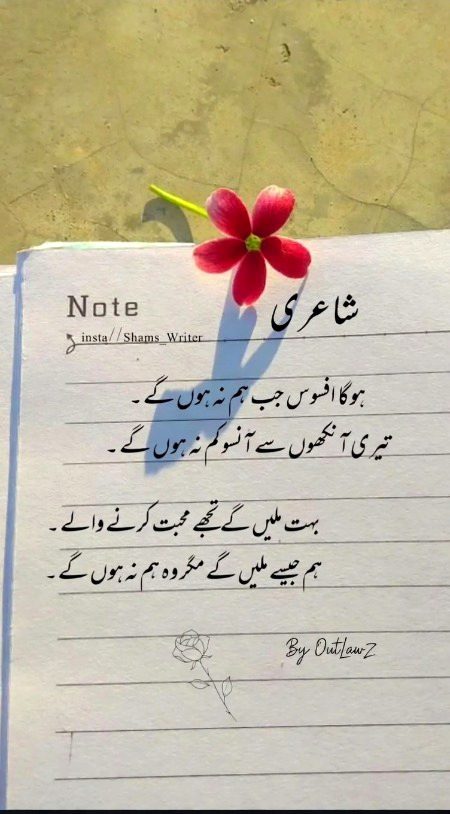 Note
شاعری
insta//Shams_Writer
ہوگا افسوس جب ہم نہ ہوں گے ۔
تیری آنکھوں سے آنسو کم نہ ہوں گے ۔
بہت ملیں گے تجھے محبت کرنے والے ۔
ہم جیسے ملیں گے مگر وہ ہم نہ ہوں گے ۔
By OutLawZ